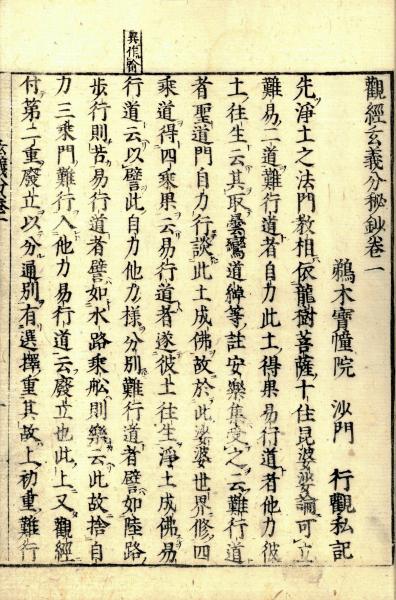 觀經玄義分秘鈔卷一
鵜木寶幢院 沙門 行觀私記
先淨土之法門教相依龍樹菩薩十住毘婆娑論可立
難易二道難行道者自力此土得果易行道者他力彼
土往生云其取曇鸞道綽等註安樂集受之云難行道
者聖道門自力行談此土成佛故於此娑婆世界修四
乘道得四乘果云易行道者遂彼土往生淨土成佛易
行道云以譬此自力他力樣分別難行道者譬如陸路
步行則苦易行道者譬如水路乘舩則樂云此故捨自
力三乘門難行入他力易行道云廢立也此上又觀經
付第二重廢立以分通別有選擇重其故上初重難行
異作喻